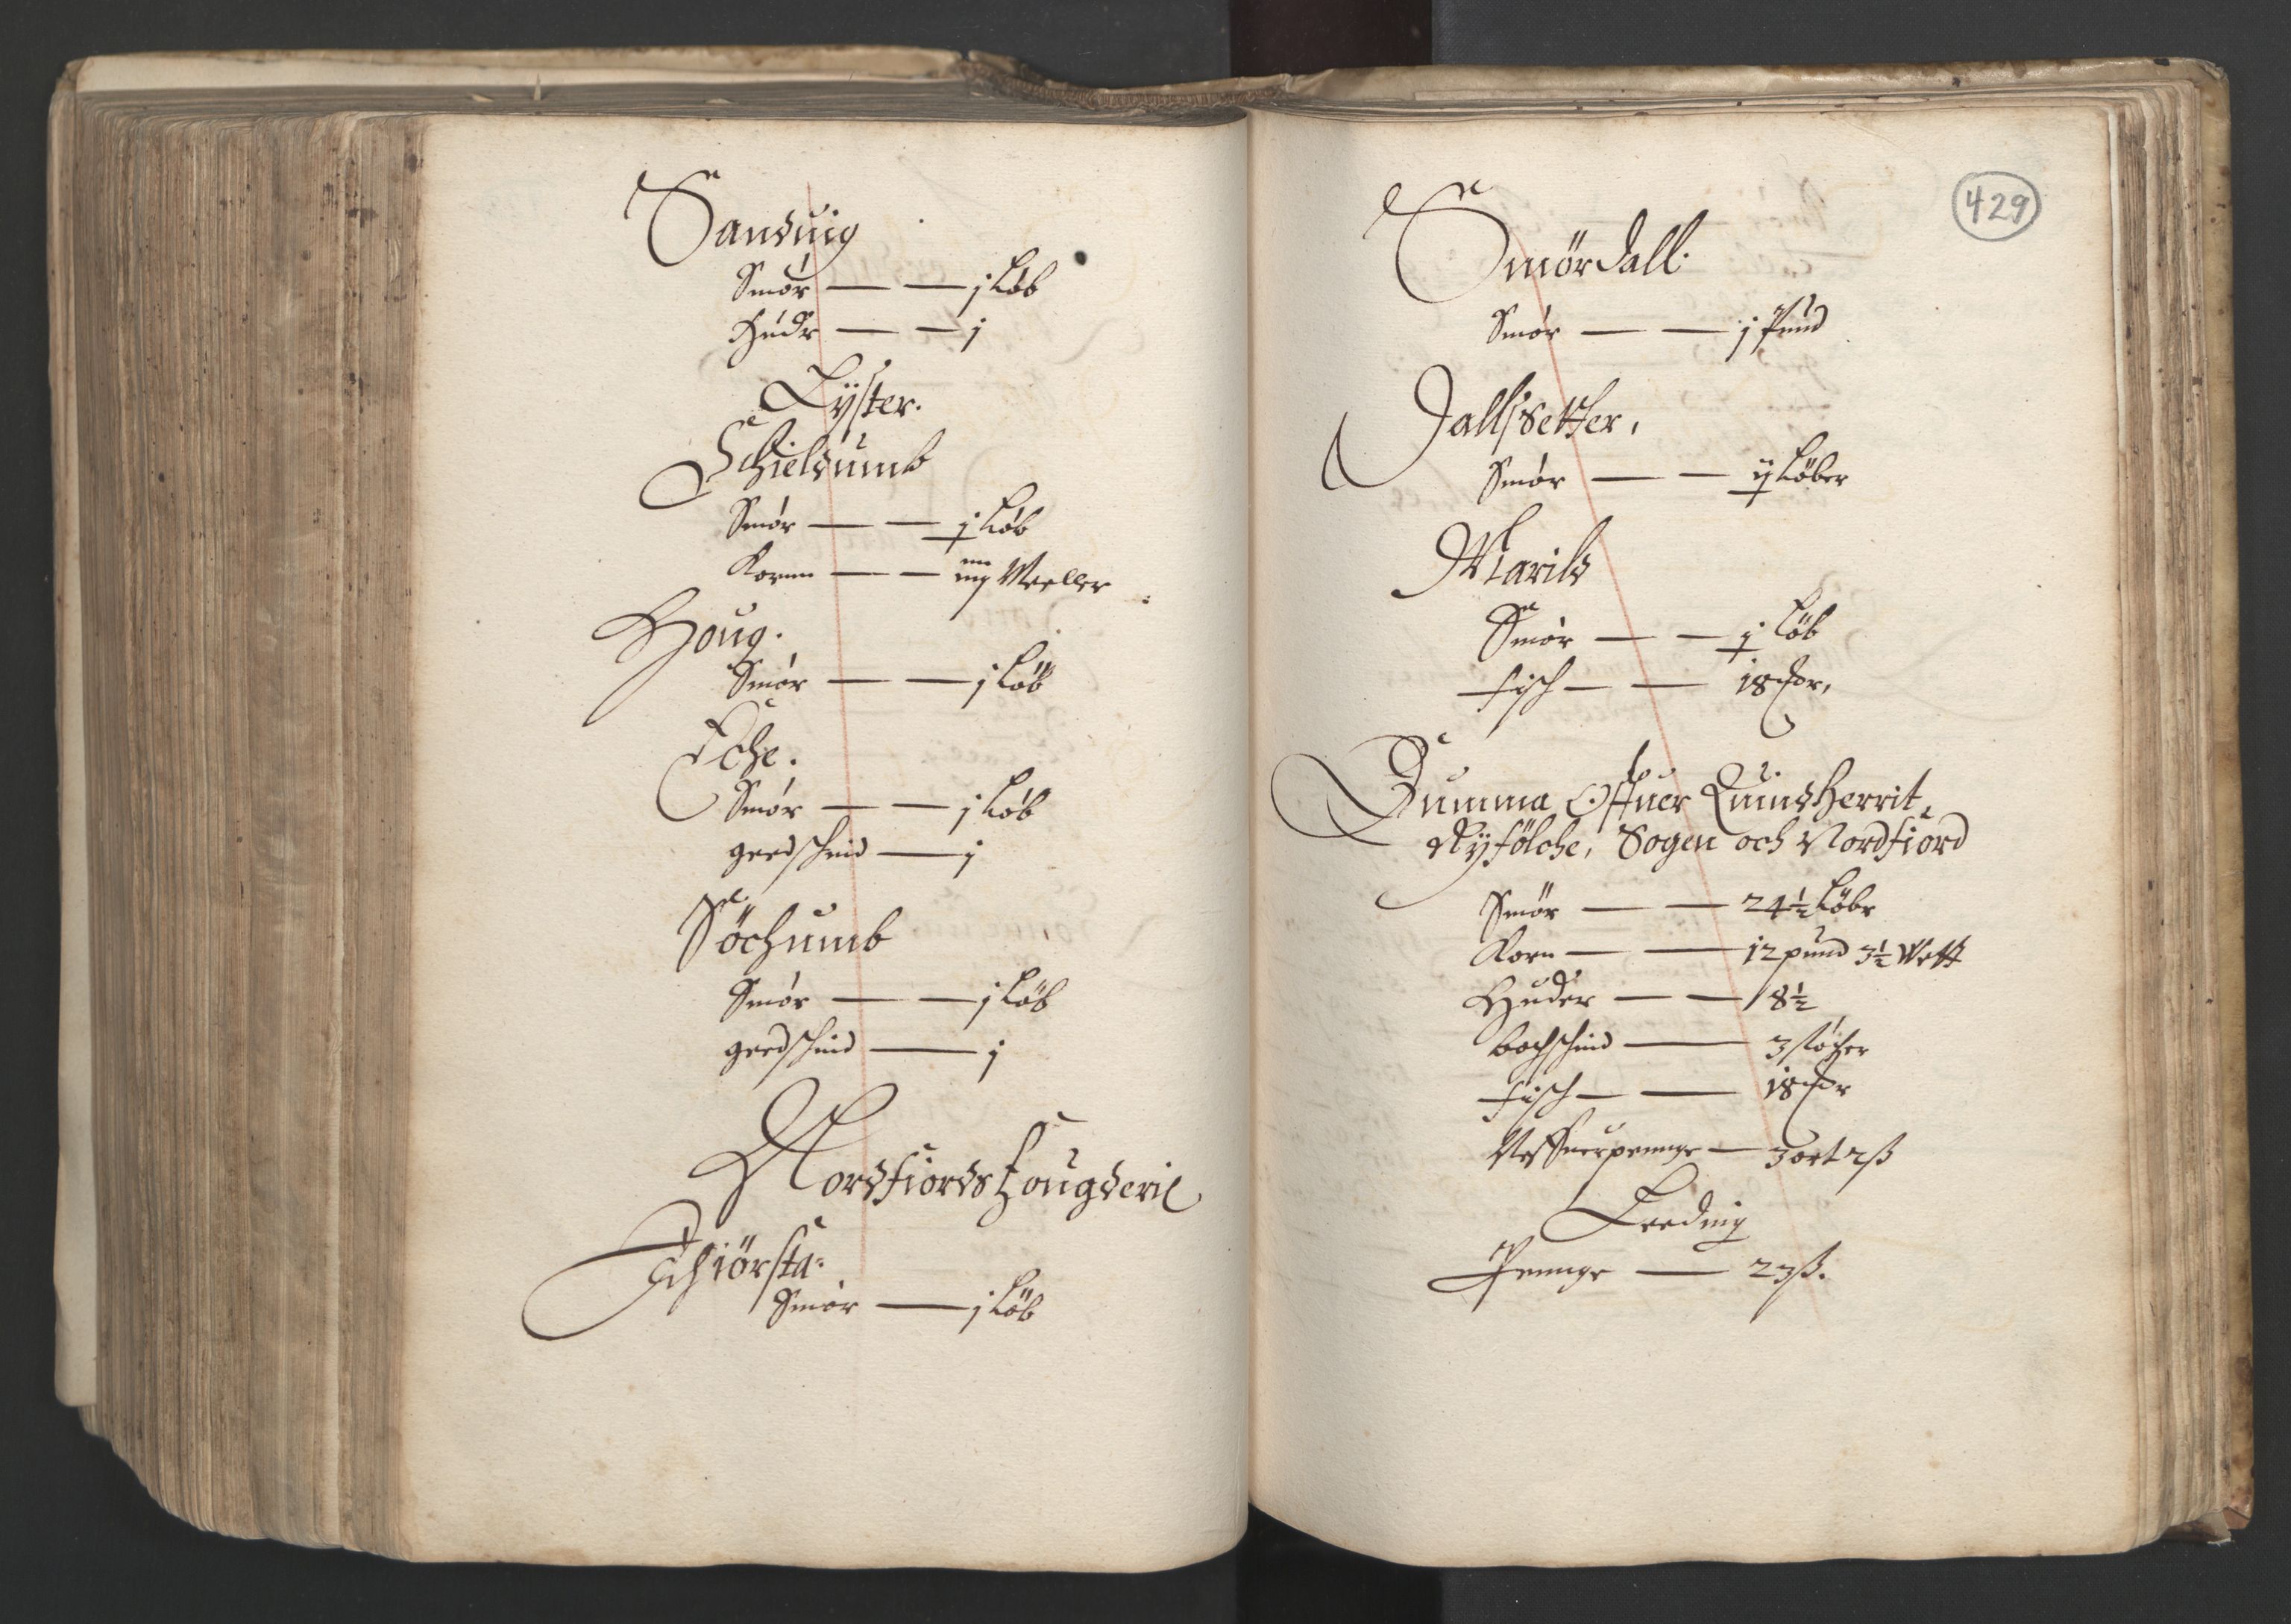 Sanduig
Smör — — j Löb
Hudr — — j
Lÿster.
Schieldumb
Smör — — j Löb
Kornn — — iiij Meeller
Houg.
Smör — — j Löb
Eche.
Smör — — j Löb
geedschind — j
Söchumb
Smör — — j Löb
geedschind — j
Nordfiords fougderie
Schiörsta:
Smör — j Löb
429
Smördall.
Smör — — j Pund
Jallssetter,
Smör — — ij Löber
Marild
Smör — — j Löb
fisch — — 18
Summa Offuer Quindherrit,
Ryfölche, Sogen och Nordfiord
Smör — — 24½ Löbr
Korn — — 12 pund 3½ Wett
Huder — — 18½
bochschind — 3 stöcher
fisch — — 18
— 3 ort 2 ß
Leeding
Pennge — 23 ß.